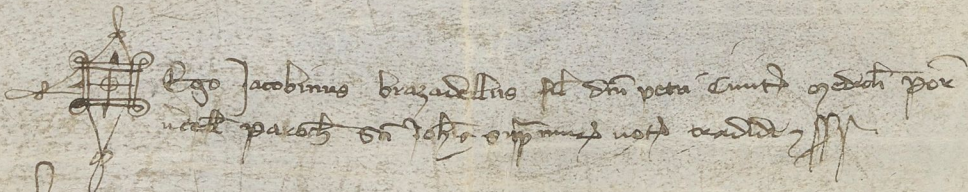 Ego Jacobinus brazadellus fil dni petri Civit mediol por
ticell paroch Sci Joh supra muru not tradidi